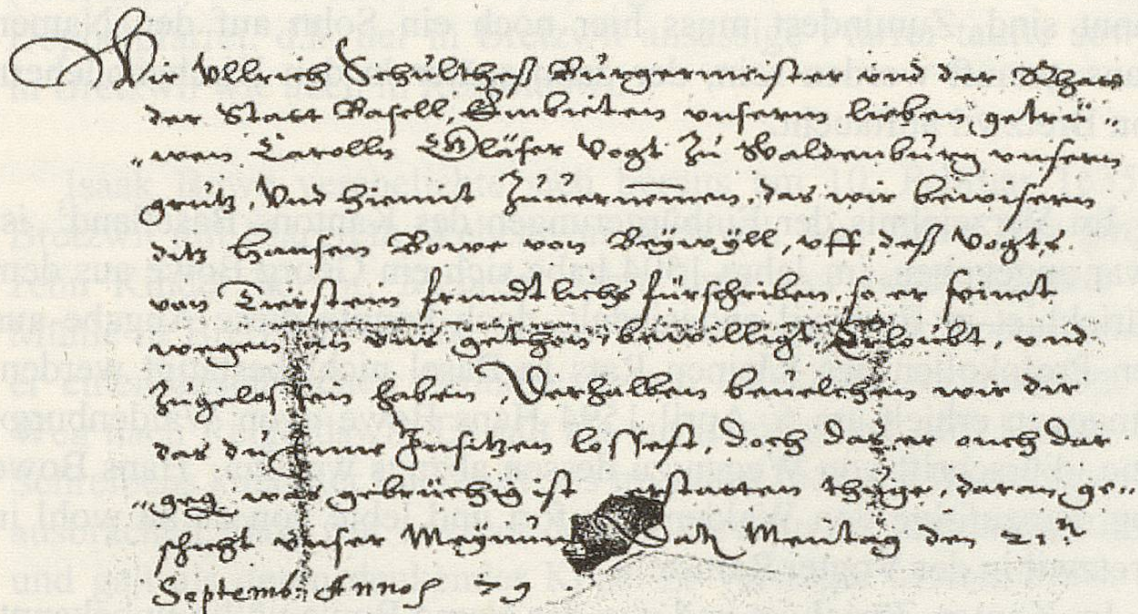 Wir Ullrich Schultheß Burgermeister und der Rhat
der Statt Basell, Embieten unserm lieben, getrü„
„wen Carolln Gläser Vogt zu Waldenburg unsern
grutz, Und hiemit Zuuernemen, das wir bewisern
ditz Hansen Bowe von Brywyll, uff deß Vogts
von Tierstein frundtlichs fürschriben, so er sinet
wegen an uns gethon, bewilligt, Erloubt, und
Zugelossen haben, Derhalben bevelchen wir dir
das du Inne Insitzen lossest, doch das er ouch dar
„geg, was gebrüchig ist erstatten thüge, daran ge„
schicht unser Meynung Dat. Mentag den 21.n
Septemb. Annoh 79.